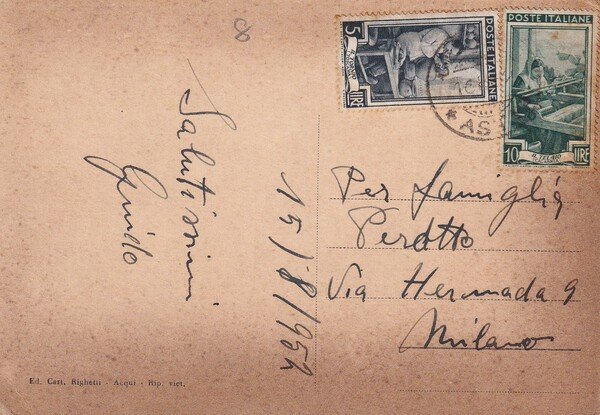 8
Salutissimi
Guido
15/8/952
5
LIRE
POSTE ITALIANE
10
LIRE
POSTE ITALIANE
IL TELAIO
Per famiglia
Perotto
Via Hermada 9
Milano
Ed. Cart. Righetti - Acqui - Rip. viet.